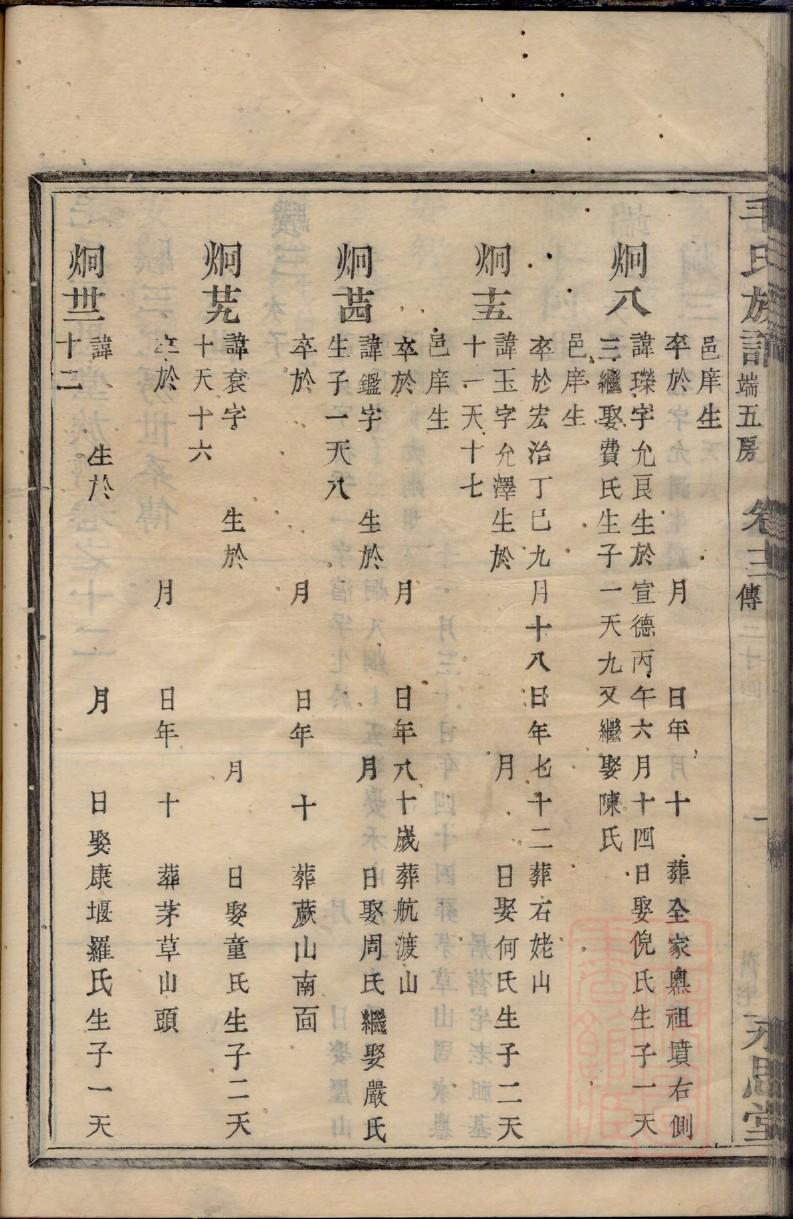 毛氏族譜 端五房 卷 傳 一 永思堂
邑庠生
卒於 月 日年 十 葬全家奧祖墳右側
炯八 諱瓅字允良生於宣德丙午六月十四日娶倪氏生子一天
三繼娶費氏生子一天九又繼娶陳氏
邑庠生
卒於宏治丁巳九月十八日年七十二葬石姥山
炯十五 諱玉字允澤生於 月 日娶何氏生子二天
十一天十七
邑庠生
卒於 月 日年八十歲葬航渡山
炯廿四 諱鑑字 生於 月 日娶周氏繼娶嚴氏
生子一天八
卒於 月 日年 十 葬蕨山南面
炯廿九 諱袞字 生於 月 日娶童氏生子二天
十天十六
卒於 月 日年 十 葬茅草山頭
炯 諱 生於 月 日娶康堰羅氏生子一天
十二